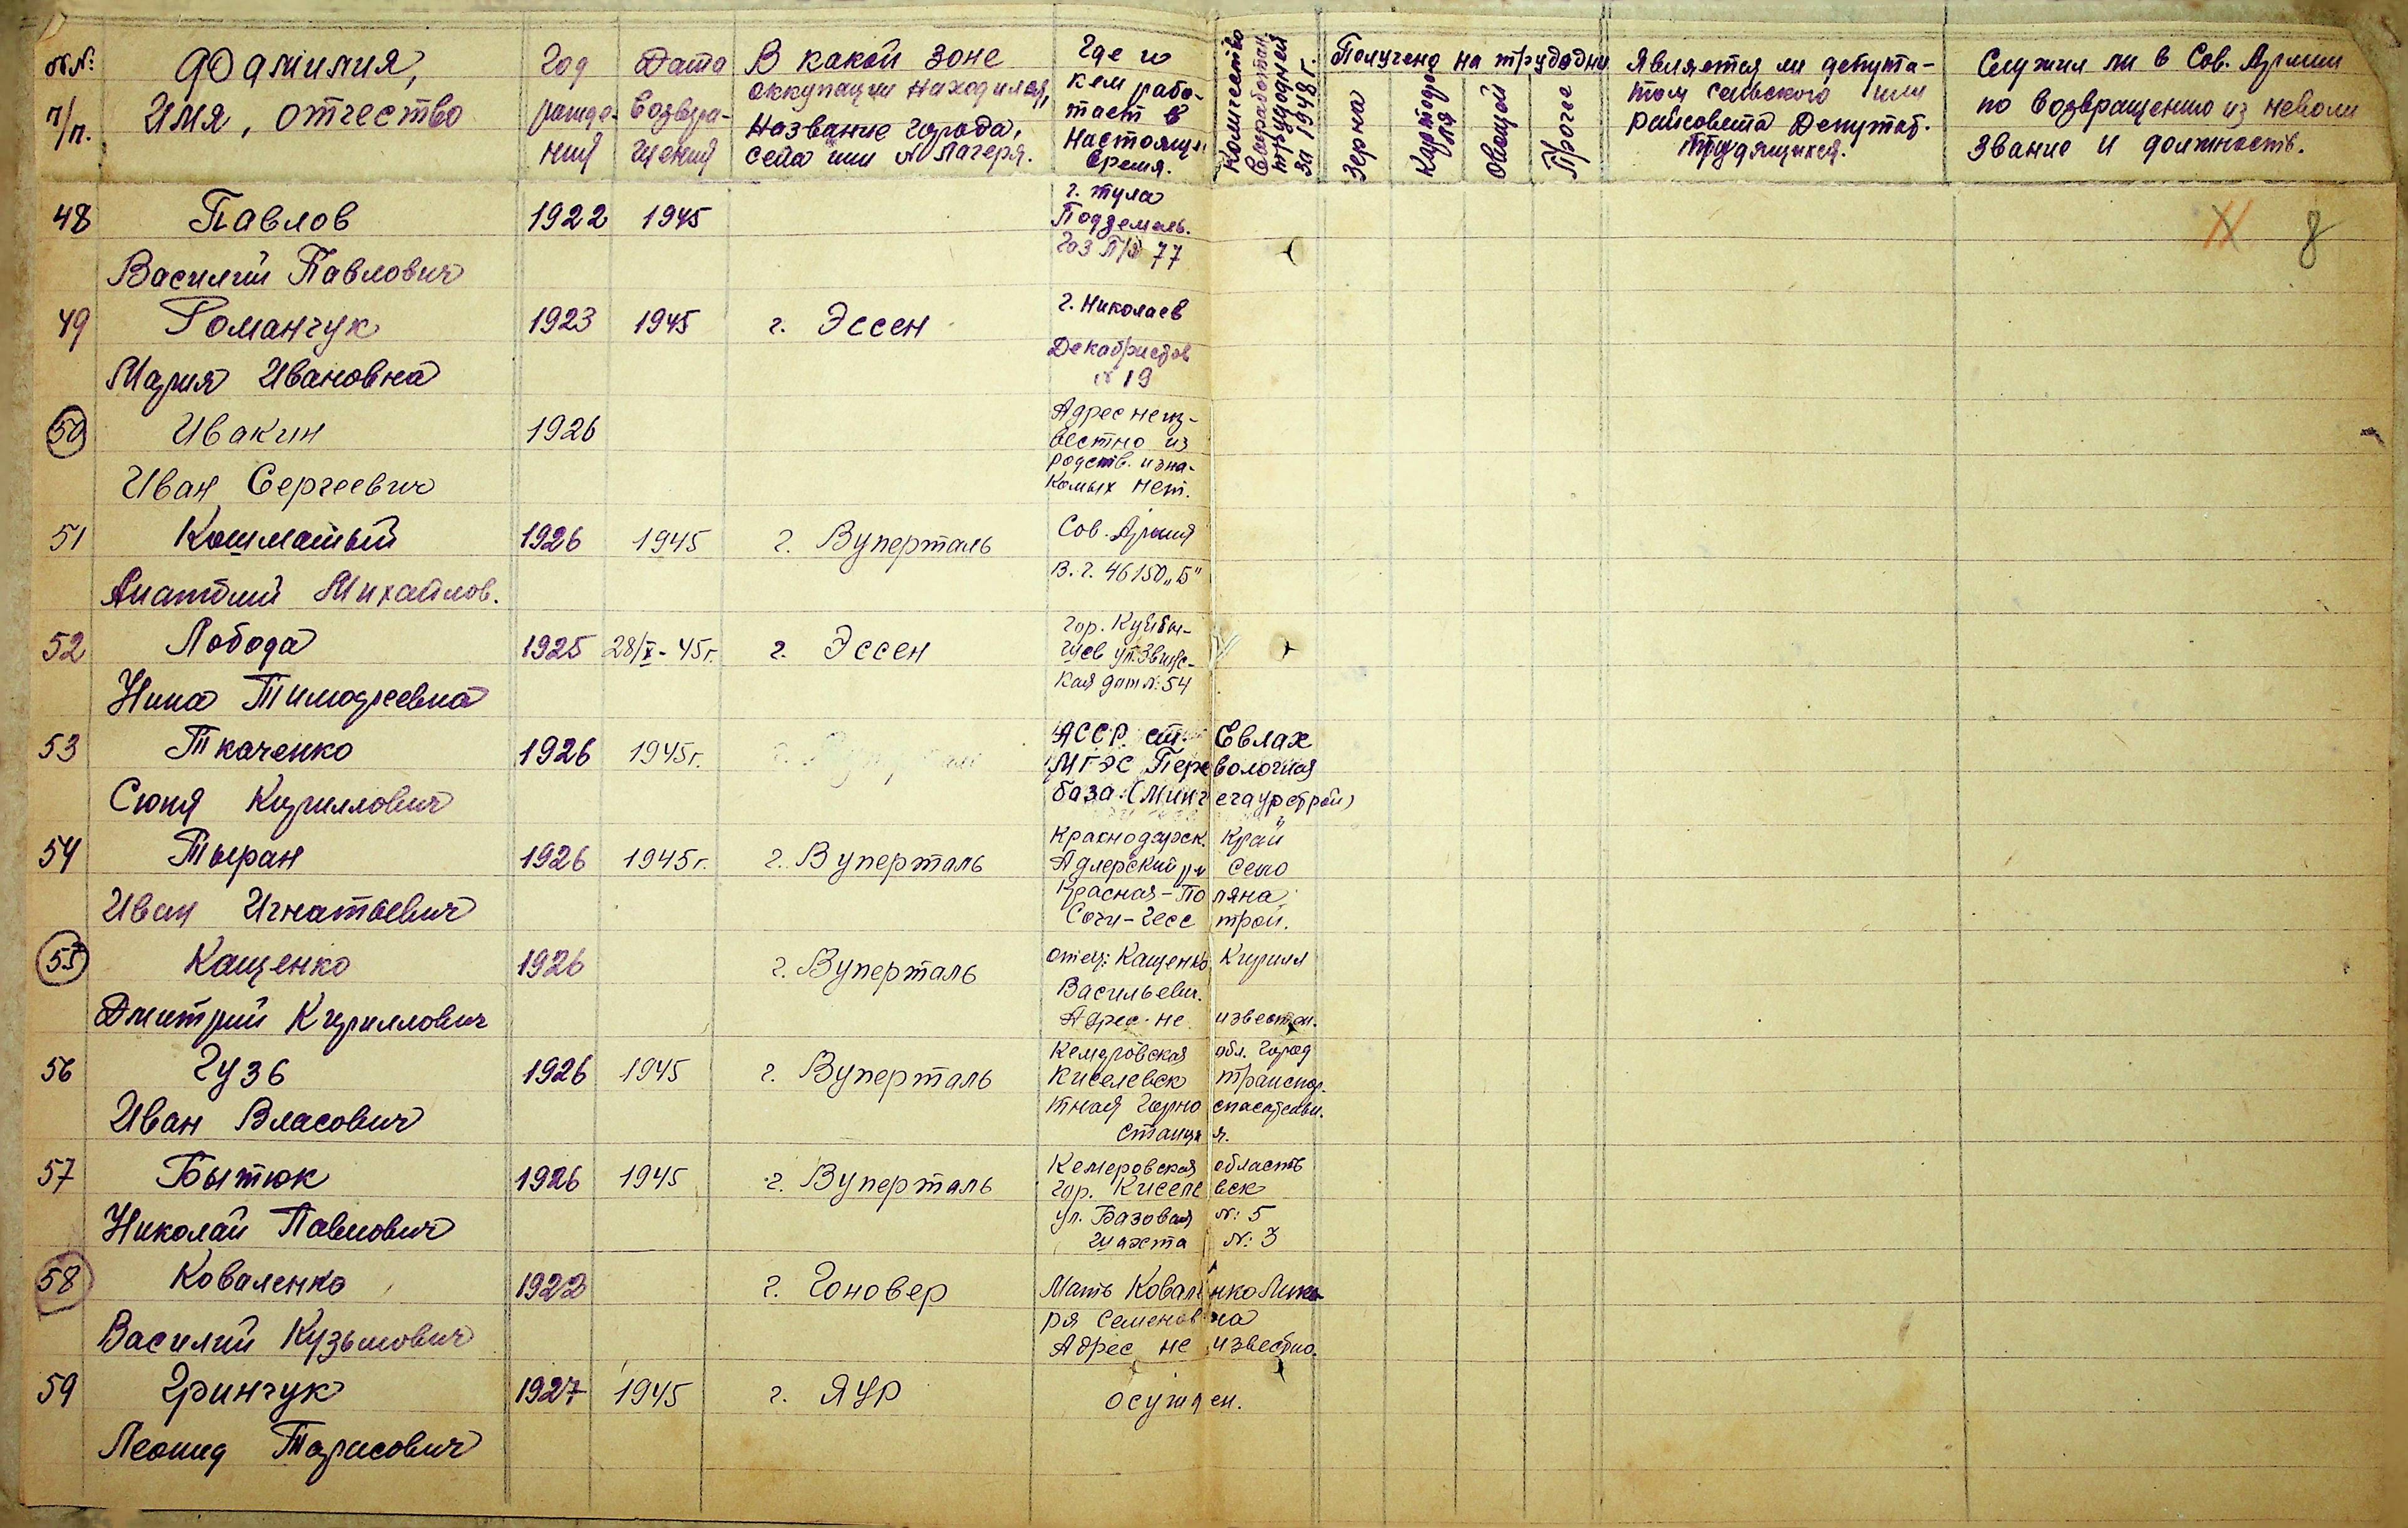 №№: п/п.
Фамилия,
Имя, отчество
Год
рожде-
ния
Дата
возвра-
щения
В какой зоне
оккупации находился,
название города,
села или № лагеря.
Где и
кем рабо-
тает в
настоящ.
время.
Количество
выработан.
трудодней
за 1948 г.
Получено на трудодни
Зерна
Картофеля
Овощей
Прочее
Является ли депута-
том сельского или
райсовета Депутат.
Трудящихся.
Служил ли в Сов. Армии
по возвращению из неволи
звание и должность.
8
48 Павлов 1922 1945
Василий Павлович
г. Тула
Подземаль.
77
49 Романчук 1923 1945 г. Эссен
Мария Ивановна
г. Николаев
Декабристов
№ 19
50 Ивакин 1926
Иван Сергеевич
Адрес неиз-
вестно из
родств. и зна-
комых нет.
51 Кошматый 1926 1945 г. Вуперталь
Анатолий Михайлов.
Сов. Армия
В. г. 46150 „Б"
52 Лобода 1925 28/X - 45г. г. Эссен
Нина Тимофеевна
гор. Куйбы-
шев ул.
кая №: 54
53 Ткаченко 1926 1945г.
Сюня Кириллович
АССР. ст. Евлах
МГЭС Перевалочная
база. (Мингечаурстрой)
54 Тыран 1926 1945г. г. Вуперталь
Иван Игнатьевич
Краснодарск. Край
Адлерский рн село
Красная-Поляна
Сочи-Гэсстрой.
55 Кащенко 1926 г. Вуперталь
Дмитрий Кириллович
отец: Кащенко Кирилл
Васильевич.
Адрес не известен.
56 Гузь 1926 1945 г. Вуперталь
Иван Власович
Кемеровская обл. город
Киселевск транспор-
тная горно спасательн.
станция.
57 Бытюк 1926 1945 г. Вуперталь
Николай Павлович
Кемеровская область
гор. Киселевск
ул. Базовая №: 5
шахта №: 3
58 Коваленко 1922 г. Гоновер
Василий Кузьмович
Мать Коваленко Лике-
ря Семеновна
Адрес не известно.
59 Гринчук 1927 1945 г. Яур
Леонид Тарасович
осужден.